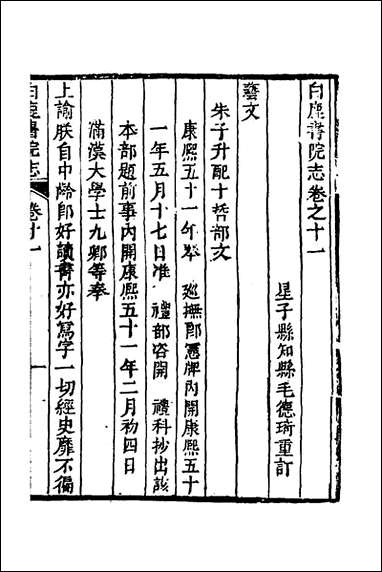 白鹿書院志卷之十一
星子縣知縣毛德琦重訂
藝文
朱子升配十哲部文
康熙五十一年奉　廵撫郎憲牌內開康熙五十
一年五月十七日准　禮部咨開　禮科抄出該
本部題前事內開康熙五十一年二月初四日
滿漢大學士九卿等奉
上諭朕自中齡即好讀書亦好寫字一切經史靡不徧
白鹿書院志　卷十一　一